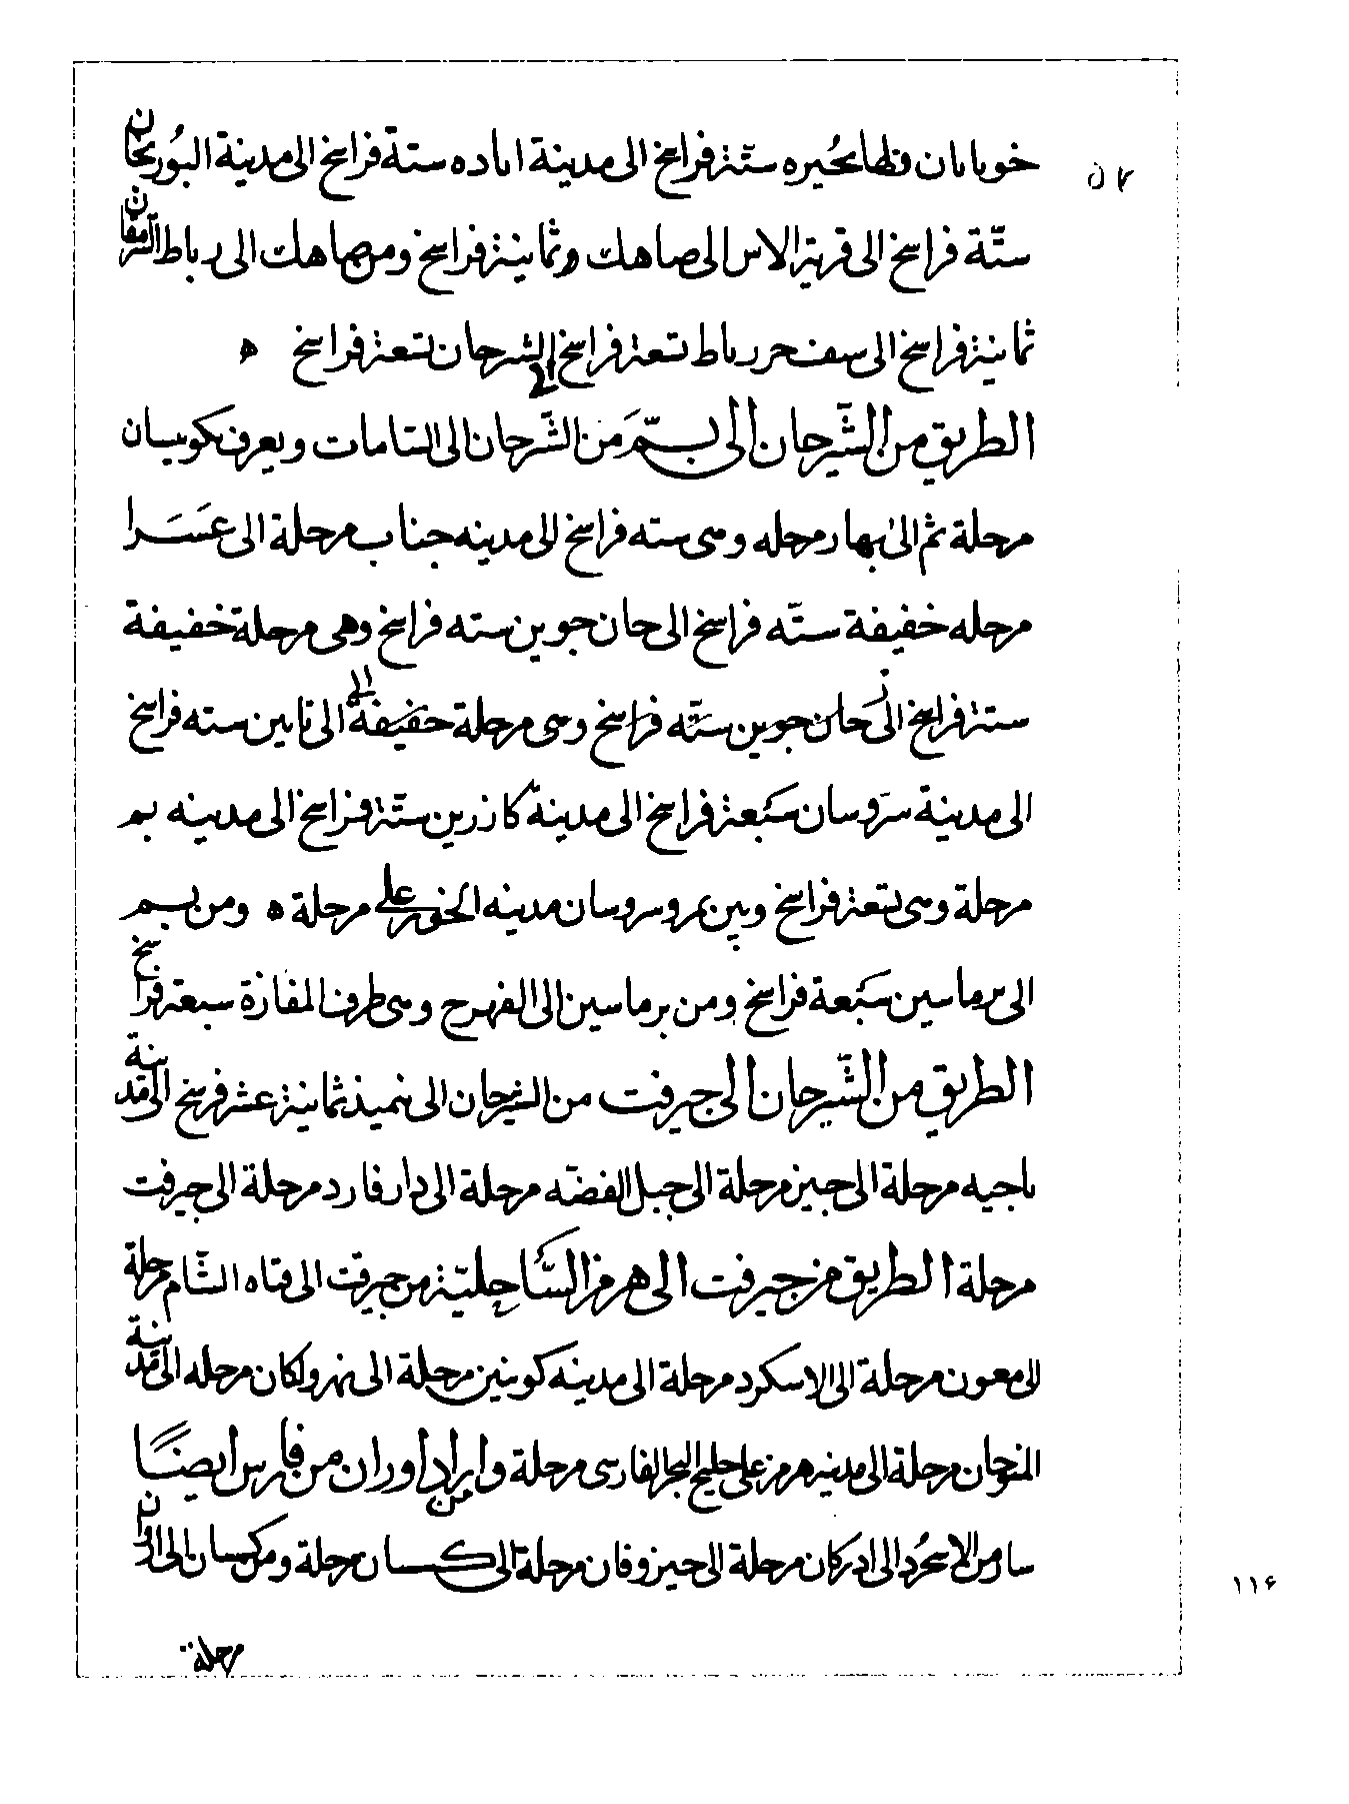 خوبابان فطابحيره ستّة فراسخ الى مدينة اباده ستة فراسخ الى مدينة البورنجان
ستّة فراسخ الى قرية الاس الى صاهك وثمانية فراسخ ومن صاهك الى رباط السرمقان
ثمانية فراسخ الى سف حر رباط تسعة فراسخ الى الشرجان تسعة فراسخ ه
الطريق من الشّيرجان الى بمّ من الشّرجان الى الشامات ويعرف بكوسان
مرحلة ثم الى بهار مرحله وهى سته فراسخ الى مدينه جناب مرحلة الى عسرا
مرحله خفيفة ستّه فراسخ الى حان جوين سته فراسخ وهى مرحلة خفيفة
ستة فراسخ الى حان جوين ستّه فراسخ وهى مرحلة خفيفة الى تابين سته فراسخ
الى مدينة سروسان سبعة فراسخ الى مدينة كازرين ستّة فراسخ الى مدينه بم
مرحلة وهى تسعة فراسخ وبين بم وسروسان مدينه على مرحلة ه ومن بم
الى برماسين سبعة فراسخ ومن برماسين الى الفهرج وهى طرف المفازة سبعة فراسخ
الطريق من الشّيرجان الى جيرفت من الشيرجان الى نميذ ثمانية عشر فرسخ الى مدينة
باجيه مرحلة الى جيز مرحلة الى جبل الفضّه مرحلة الى دار فارد مرحلة الى جيرفت
مرحلة الطريق من جيرفت الى هرمز السّاحليّة من جيرفت الى قناه الشّام مرحلة
الى معون مرحلة الى الاسكرد مرحلة الى مدينه كوبنين مرحلة الى نهر ولكان مرحله الى مدينة
المنوجان مرحلة الى مدينه هرمز على خليج البحر الفارسى مرحلة وايراد اوران من فارس ايضًا
سار من الاسحرد الى ادركان مرحلة الى جيزوفان مرحلة الى كسسان مرحلة ومن كمسان الى اروان
مرحلة
٥٧
١١۶